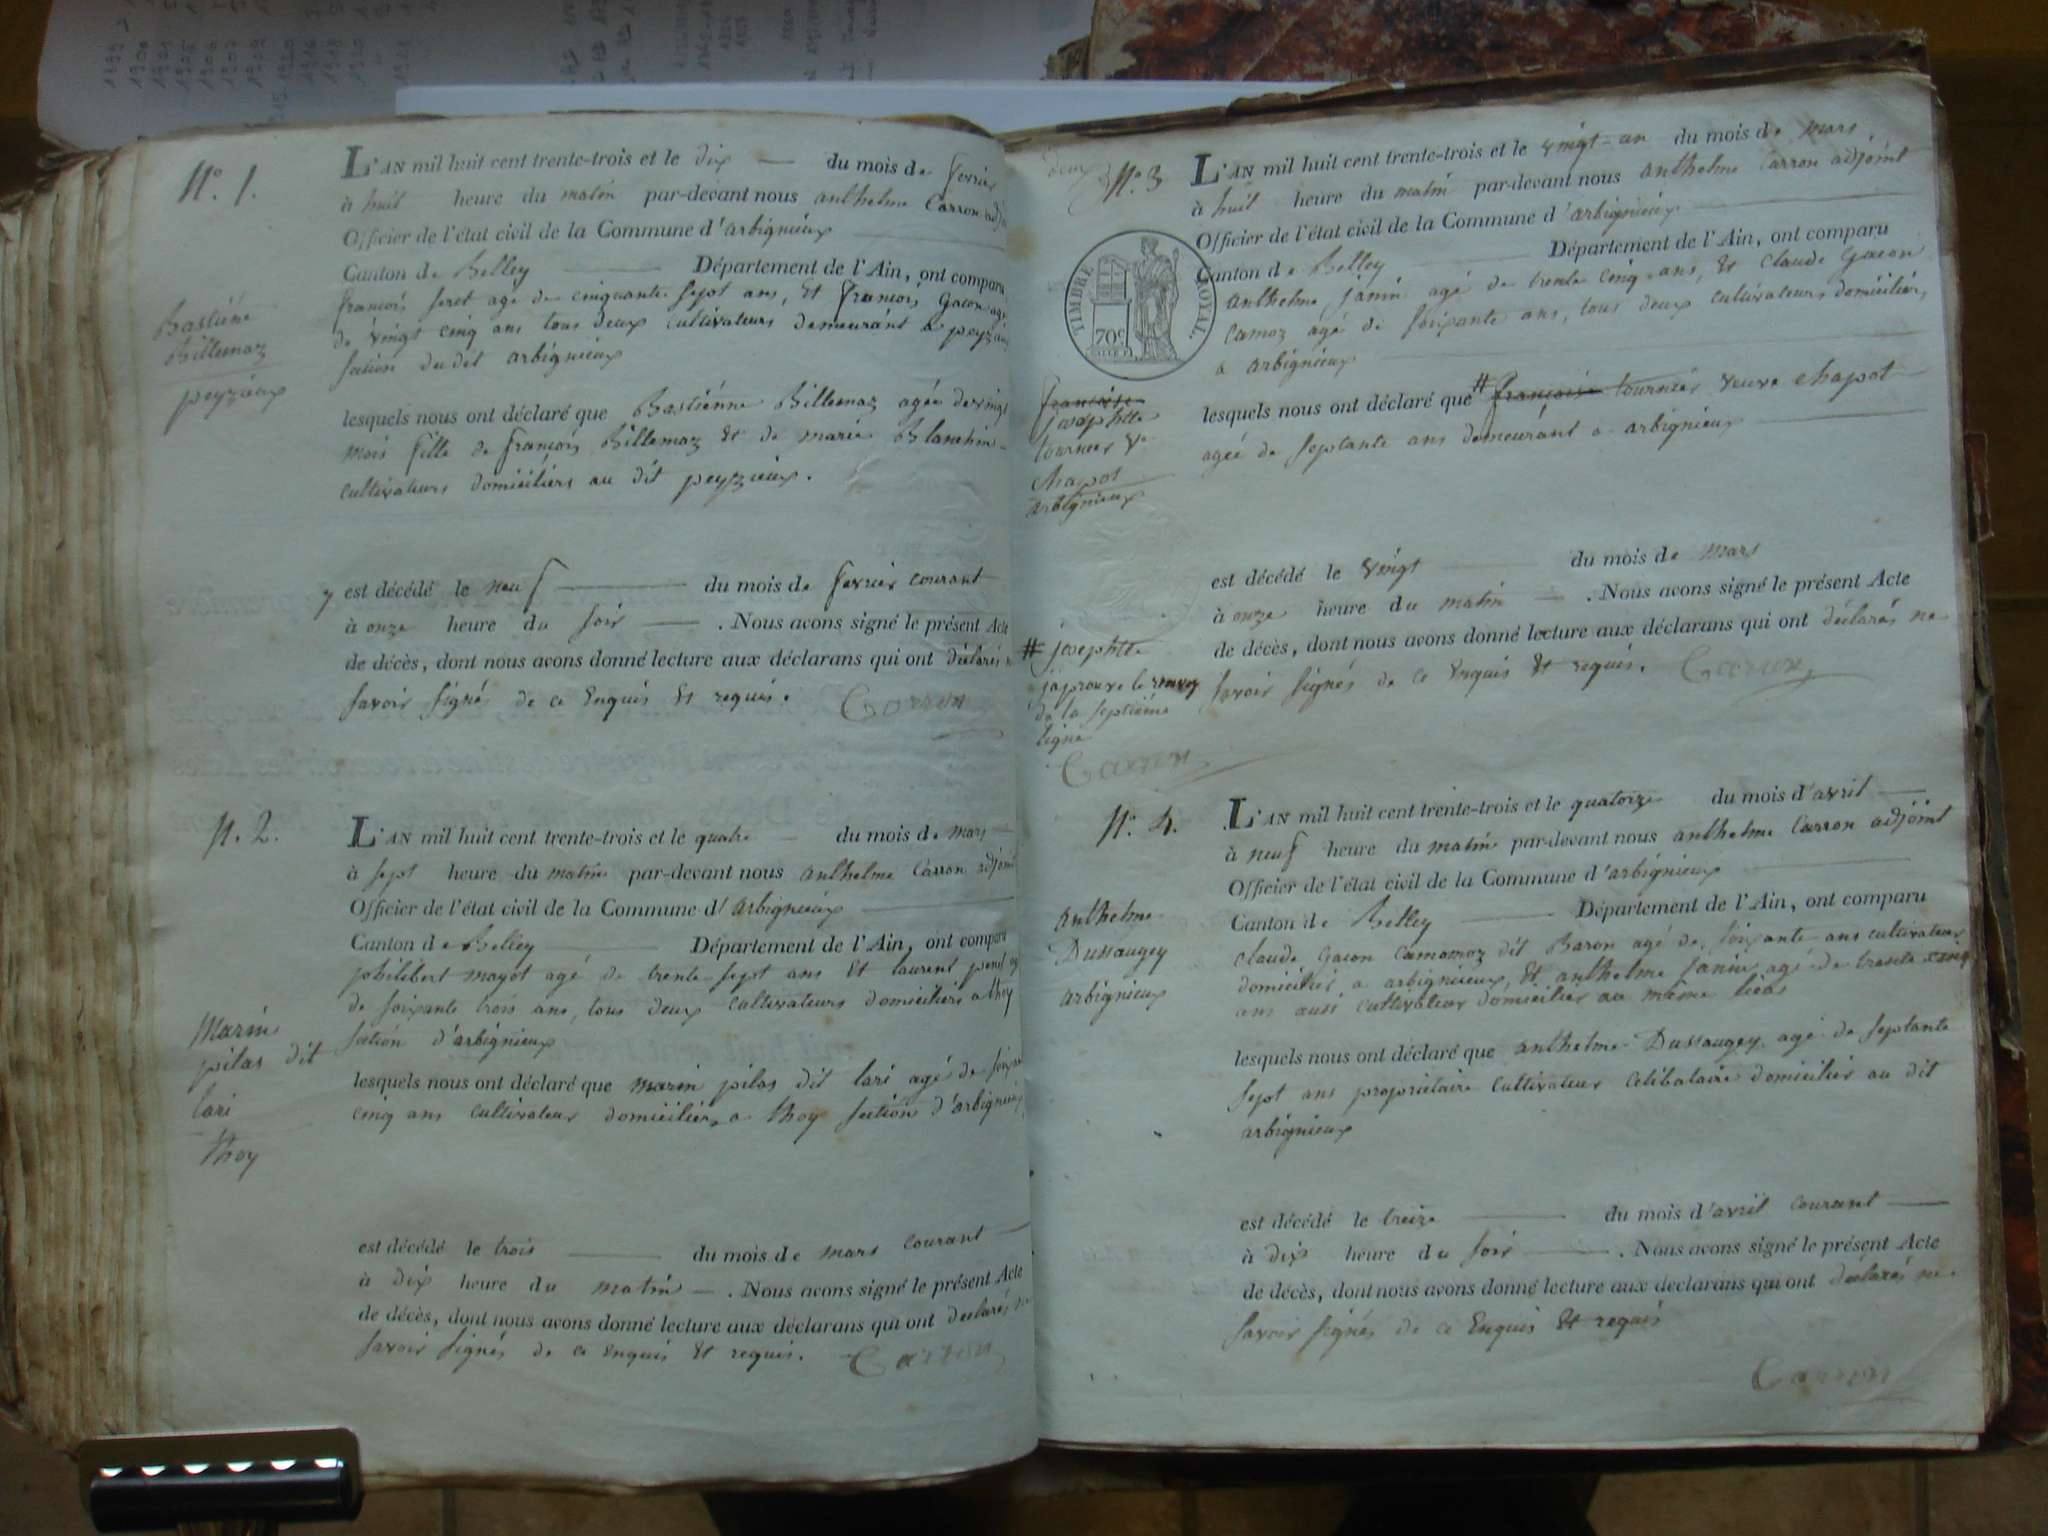 N.o 1.
L'AN mil huit cent trente-trois et le dix du mois de fevrier
à huit heure du matin par-devant nous anthelme Carron adj
Officier de l'état civil de la Commune d'arbignieux
Canton de Belley Département de l'Ain, ont comparu
françois feret agé de cinquante sept ans, et françois Gacon agé
de vingt cinq ans tous deux cultivateurs demeurant a peyzieu
section du dit arbignieux
Bastiéne
Billemaz
peyzieux
lesquels nous ont déclaré que Bastiénne Billemaz agée de vingt
mois fille de françois Billemaz et de marie Blanchin
cultivateurs domiciliers au dit peyzieux.
y est décédé le neuf du mois de fevrier courant
à onze heure du soir . Nous avons signé le présent Acte
de décès, dont nous avons donné lecture aux déclarans qui ont déclarés n
savoir signés de ce Enquis Et requis. Carron
N. 2.
L'AN mil huit cent trente-trois et le quatre du mois de mars
à sept heure du matin par-devant nous anthelme Carron adjoint
Officier de l'état civil de la Commune d'arbignieux
Canton de Belley Département de l'Ain, ont comparu
philibert mayot agé de trente sept ans et laurent
de soixante trois ans, tous deux cultivateurs domiciliers a thoy
section d'arbignieux
Marin
pilas dit
lari
thoy
lesquels nous ont déclaré que marin pilas dit lari agé de soixan
cinq ans cultivateur domicilier a thoy section d'arbignieux
est décédé le trois du mois de mars courant
à dix heure du matin . Nous avons signé le présent Acte
de décès, dont nous avons donné lecture aux déclarans qui ont déclarés n
savoir signés de ce enquis et requis. Carron
deux
N.o 3
L'AN mil huit cent trente-trois et le vingt-un du mois de mars,
à huit heure du matin par-devant nous anthelme Carron adjoint
Officier de l'état civil de la Commune d'arbignieux
Canton de Belley Département de l'Ain, ont comparu
anthelme janin agé de trente cinq ans, et claude Gacon
Camoz agé de soixante ans, tous deux cultivateurs domiciliers
a arbignieux
TIMBRE ROYAL
70c
françoise
josephtte
tournier Ve
Chapot
arbignieux
lesquels nous ont déclaré que # françoise tournier veuve chapot
agée de septante ans demeurant a arbignieux
est décédé le vingt du mois de mars
à onze heure du matin . Nous avons signé le présent Acte
de décès, dont nous avons donné lecture aux déclarans qui ont déclarés ne
savoir signés de ce Enquis Et requis. Carron
# josephtte
japrouve le renvoy
de la septiéme
ligne
Carron
N.o 4.
L'AN mil huit cent trente-trois et le quatorze du mois d'avril
à neuf heure du matin par-devant nous anthelme Carron adjoint
Officier de l'état civil de la Commune d'arbignieux
Canton de Belley Département de l'Ain, ont comparu
claude Gacon Camomoz dit Baron agé de soixante ans cultivateur
domicilier a arbignieux, et anthelme janin agé de trente cinq
ans aussi cultivateur domicilier au même lieu
anthelme
Dussaugey
arbignieux
lesquels nous ont déclaré que anthelme Dussaugey agé de septante
sept ans propriétaire cultivateur celibataire domicilier au dit
arbignieux
est décédé le treize du mois d'avril courant
à dix heure du soir . Nous avons signé le présent Acte
de décès, dont nous avons donné lecture aux déclarans qui ont déclarés ne
savoir signés de ce Enquis Et requis
Carron